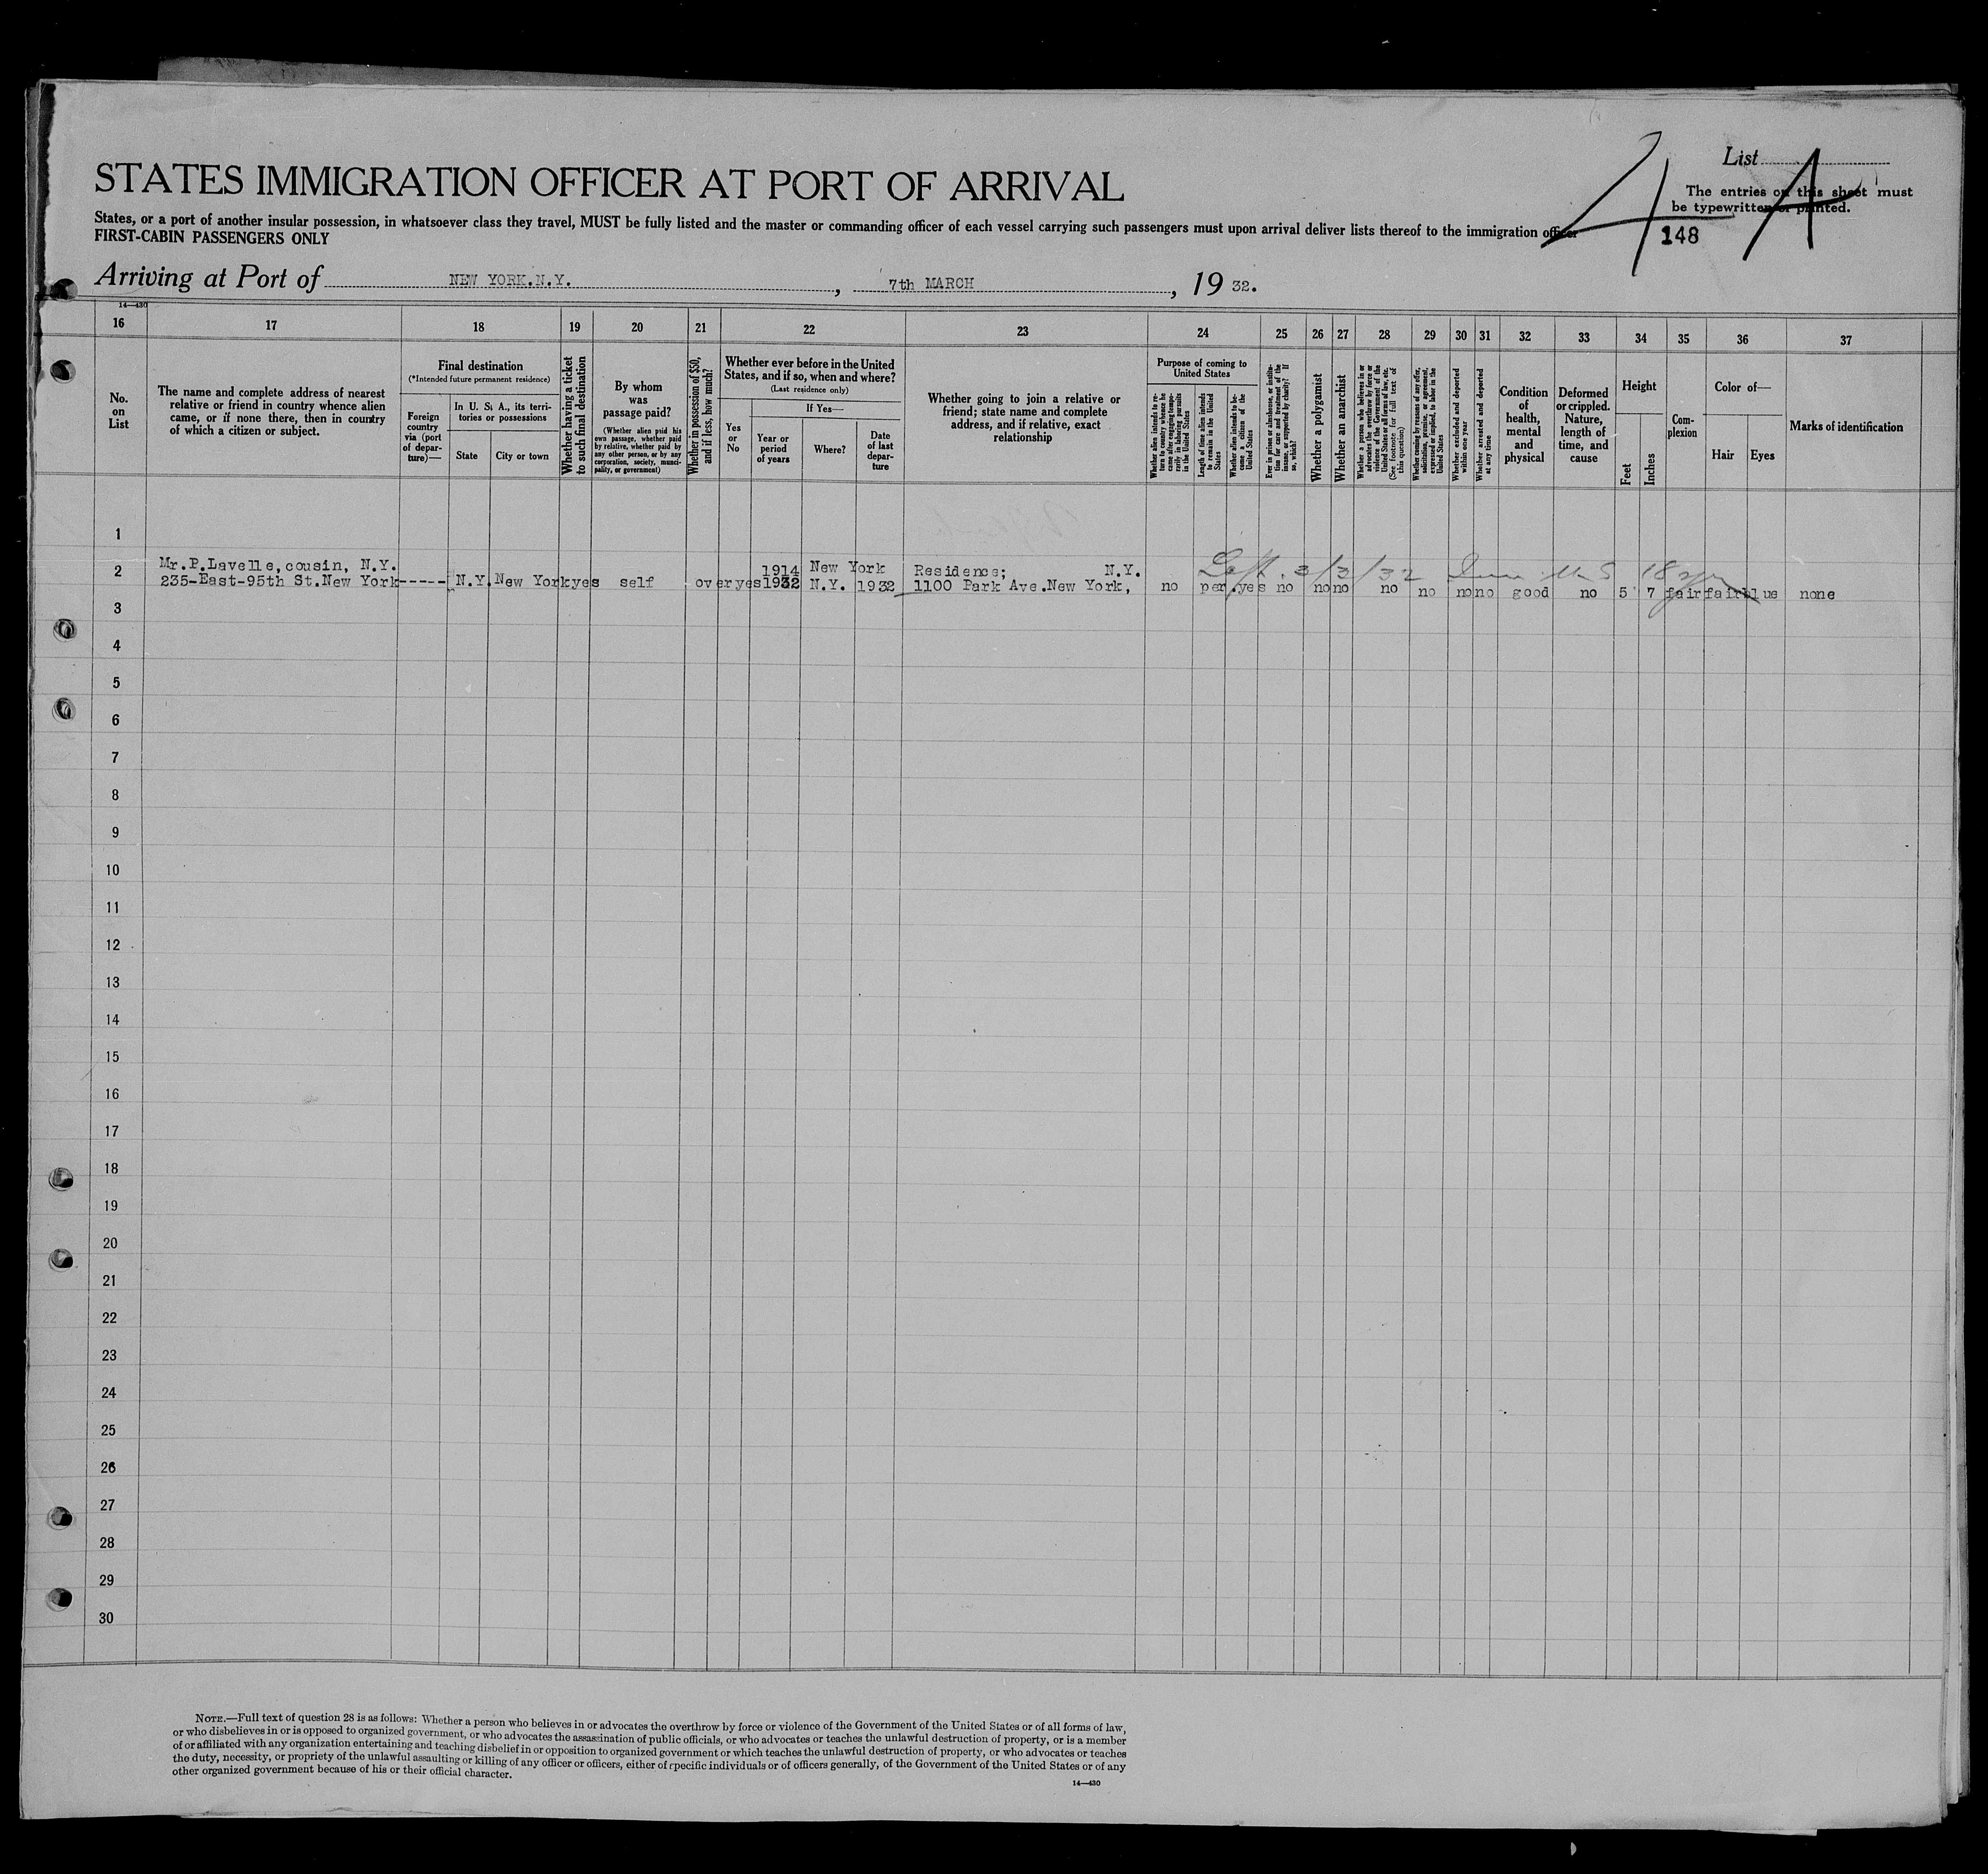 List
4 A
STATES IMMIGRATION OFFICER AT PORT OF ARRIVAL
The entries on this sheet must
be typewritten or printed.
States, or a port of another insular possession, in whatsoever class they travel, MUST be fully listed and the master or commanding officer of each vessel carrying such passengers must upon arrival deliver lists thereof to the immigration officer
FIRST-CABIN PASSENGERS ONLY
148
Arriving at Port of NEW YORK.N.Y. , 7th MARCH , 19 32.
14—430
16 17 18 19 20 21 22 23 24 25 26 27 28 29 30 31 32 33 34 35 36 37
No.
on
List
The name and complete address of nearest
relative or friend in country whence alien
came, or if none there, then in country
of which a citizen or subject.
Final destination
(*Intended future permanent residence)
Foreign
country
via (port
of depar-
ture)—
In U. S. A., its terri-
tories or possessions
State
City or town
Whether having a ticket
to such final destination
By whom
was
passage paid?
(Whether alien paid his
own passage, whether paid
by relative, whether paid by
any other person, or by any
corporation, society, munici-
pality, or government)
Whether in possession of $50,
and if less, how much?
Whether ever before in the United
States, and if so, when and where?
(Last residence only)
Yes
or
No
If Yes—
Year or
period
of years
Where?
Date
of last
depar-
ture
Whether going to join a relative or
friend; state name and complete
address, and if relative, exact
relationship
Purpose of coming to
United States
Whether alien intends to re-
turn to country whence he
came after engaging tempo-
rarily in laboring pursuits
in the United States
Length of time alien intends
to remain in the United
States
Whether alien intends to be-
come a citizen of the
United States
Ever in prison or almshouse, or institu-
tion for care and treatment of the
insane, or supported by charity? If
so, which?
Whether a polygamist
Whether an anarchist
Whether a person who believes in or
advocates the overthrow by force or
violence of the Government of the
United States or all forms of law, etc.
(See footnote for full text of
this question)
Whether coming by reasons of any offer,
solicitation, promise, or agreement,
expressed or implied, to labor in the
United States
Whether excluded and deported
within one year
Whether arrested and deported
at any time
Condition
of
health,
mental
and
physical
Deformed
or crippled.
Nature,
length of
time, and
cause
Height
Feet
Inches
Com-
plexion
Color of—
Hair
Eyes
Marks of identification
1
Left 3/3/32 U S 18 yrs
Mr.P.Lavelle,cousin, N.Y. 1914 New York Residence; N.Y.
2 235-East-95th St.New York----- N.Y. New York yes self over yes 1932 N.Y. 1932 1100 Park Ave.New York, no per. yes no no no no no no no good no 5 7 fair fair blue none
3
4
5
6
7
8
9
10
11
12
13
14
15
16
17
18
19
20
21
22
23
24
25
26
27
28
29
30
NOTE.—Full text of question 28 is as follows: Whether a person who believes in or advocates the overthrow by force or violence of the Government of the United States or of all forms of law,
or who disbelieves in or is opposed to organized government, or who advocates the assassination of public officials, or who advocates or teaches the unlawful destruction of property, or is a member
of or affiliated with any organization entertaining and teaching disbelief in or opposition to organized government or which teaches the unlawful destruction of property, or who advocates or teaches
the duty, necessity, or propriety of the unlawful assaulting or killing of any officer or officers, either of specific individuals or of officers generally, of the Government of the United States or of any
other organized government because of his or their official character.
14—430